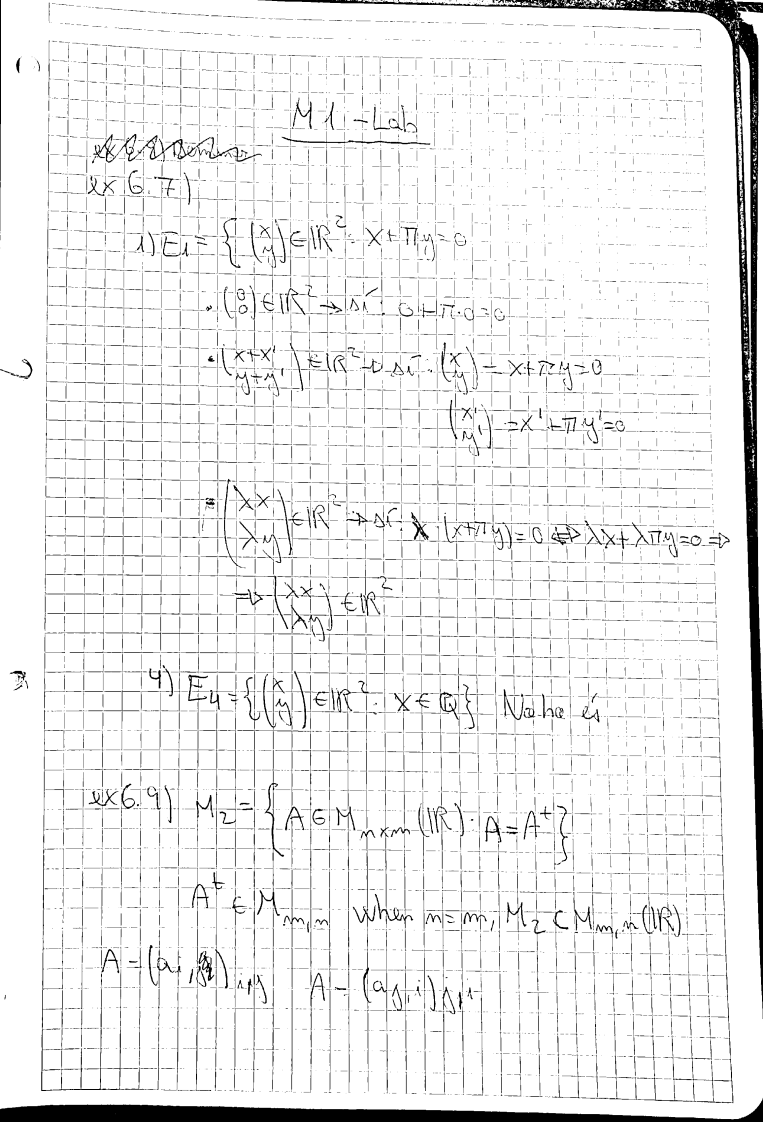 M1-Lab
ex 6.7)
1) E₁ = { (x y) ∈ ℝ² : x + πy = 0
• (0 0) ∈ ℝ² → sí : 0 + π·0 = 0
• (x+x' y+y') ∈ ℝ² → sí : (x y) = x + πy = 0
(x' y') = x' + πy' = 0
= (λx λy) ∈ ℝ² → sí : λ · (x + πy) = 0 ⇔ λx + λπy = 0 ⇒
⇒ (λx λy) ∈ ℝ²
4) E₄ = { (x y) ∈ ℝ² : x ∈ ℚ } No ho és
ex 6.9) M₂ = { A ∈ M_{n×m}(ℝ) : A = Aᵗ }
Aᵗ ∈ M_{m,n} when n = m, M₂ ⊂ M_{m,n}(ℝ)
A = (a_{i,j})_{i,j} A = (a_{j,i})_{j,i}